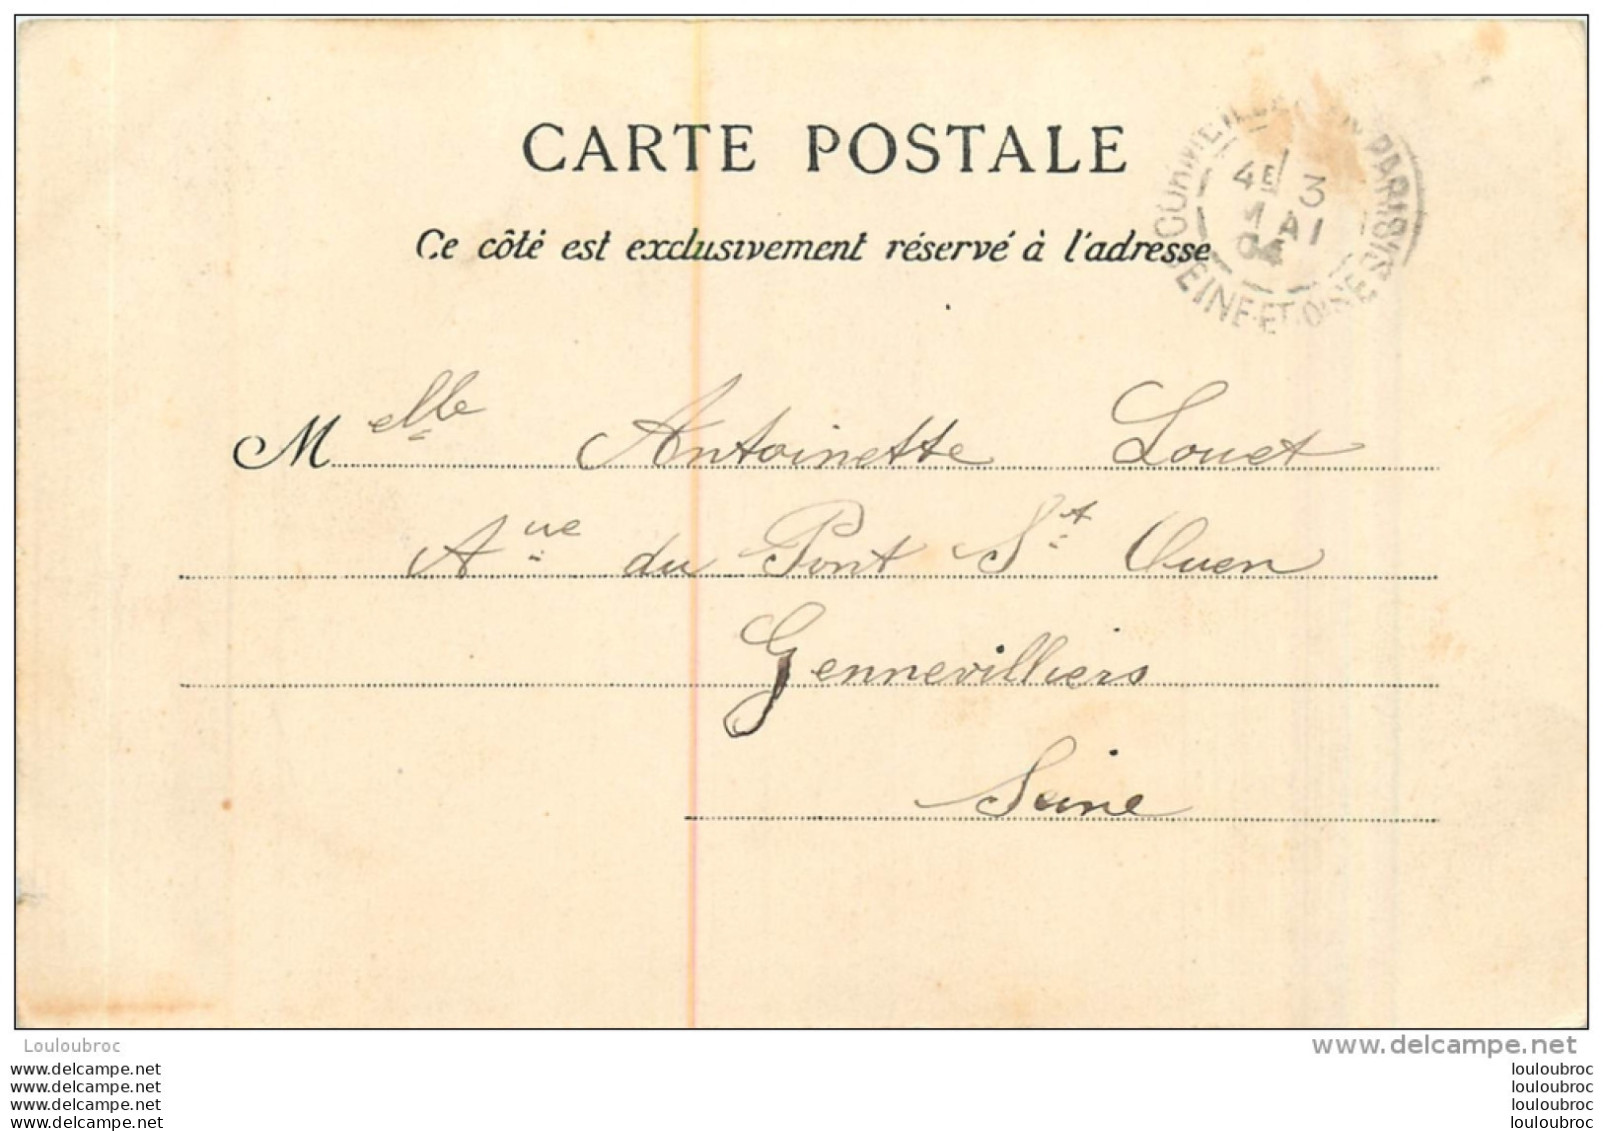 CARTE POSTALE
Ce côté est exclusivement réservé à l'adresse
CORMEILLES PARISIS
4E 3
MAI
04
SEINE-ET-OISE
Melle Antoinette Louet
Aue du Pont St Ouen
Gennevilliers
Seine
Louloubroc
www.delcampe.net
www.delcampe.net
www.delcampe.net
www.delcampe.net
www.delcampe.net
louloubroc
louloubroc
louloubroc
louloubroc